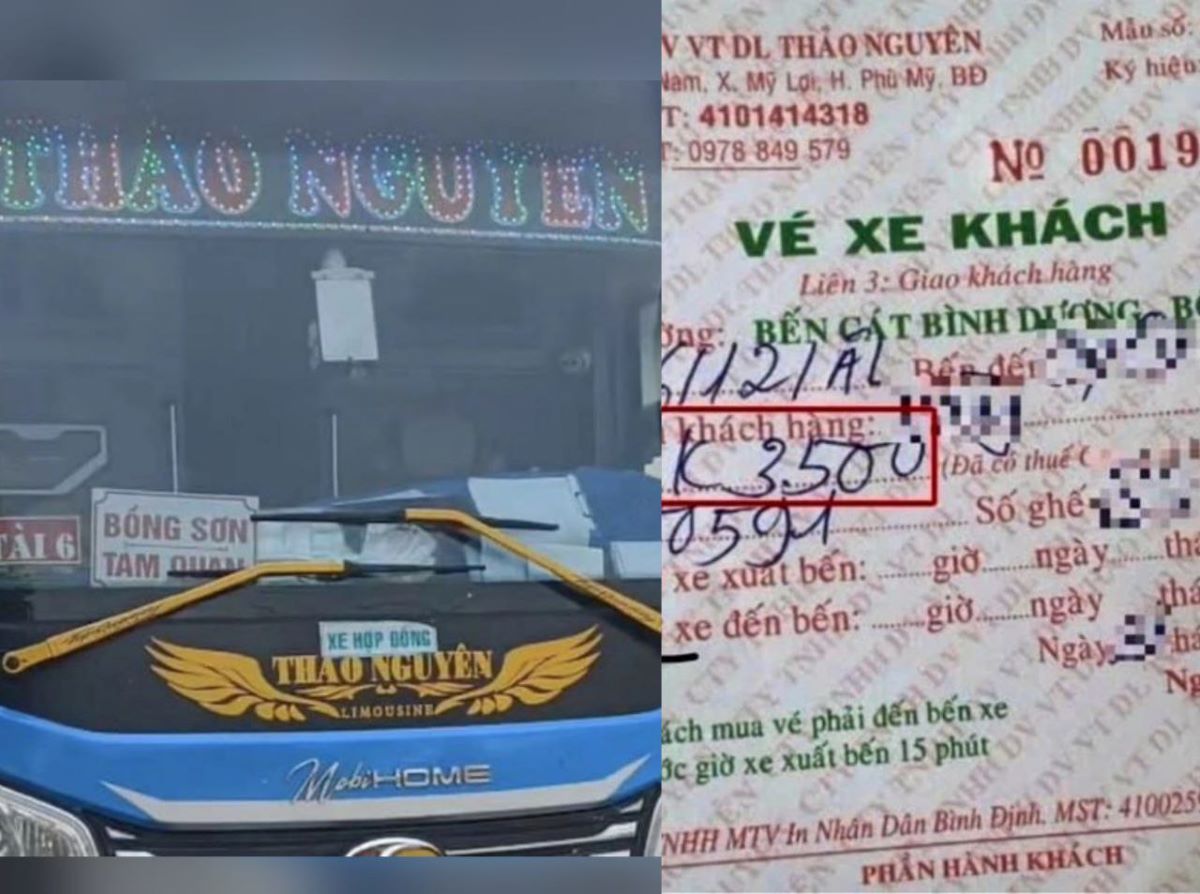 THẢO NGUYÊN
TÀI 6
BỒNG SƠN
TAM QUAN
XE HỢP ĐỒNG
THẢO NGUYÊN
LIMOUSINE
Mobi HOME
V VT DL THẢO NGUYÊN
Nam, X. Mỹ Lợi, H. Phù Mỹ, BĐ
T: 4101414318
T: 0978 849 579
Mẫu số:
Ký hiệu:
Nº 0019
VÉ XE KHÁCH
Liên 3: Giao khách hàng
BẾN CÁT BÌNH DƯƠNG - B
Bến đến
khách hàng:
K 3500 (Đã có thuế
0591 Số ghế
xe xuất bến: ......giờ......ngày......thá
xe đến bến: ......giờ......ngày......thá
Ngày
ách mua vé phải đến bến xe
ớc giờ xe xuất bến 15 phút
TNHH MTV In Nhân Dân Bình Định. MST: 410025
PHẦN HÀNH KHÁCH